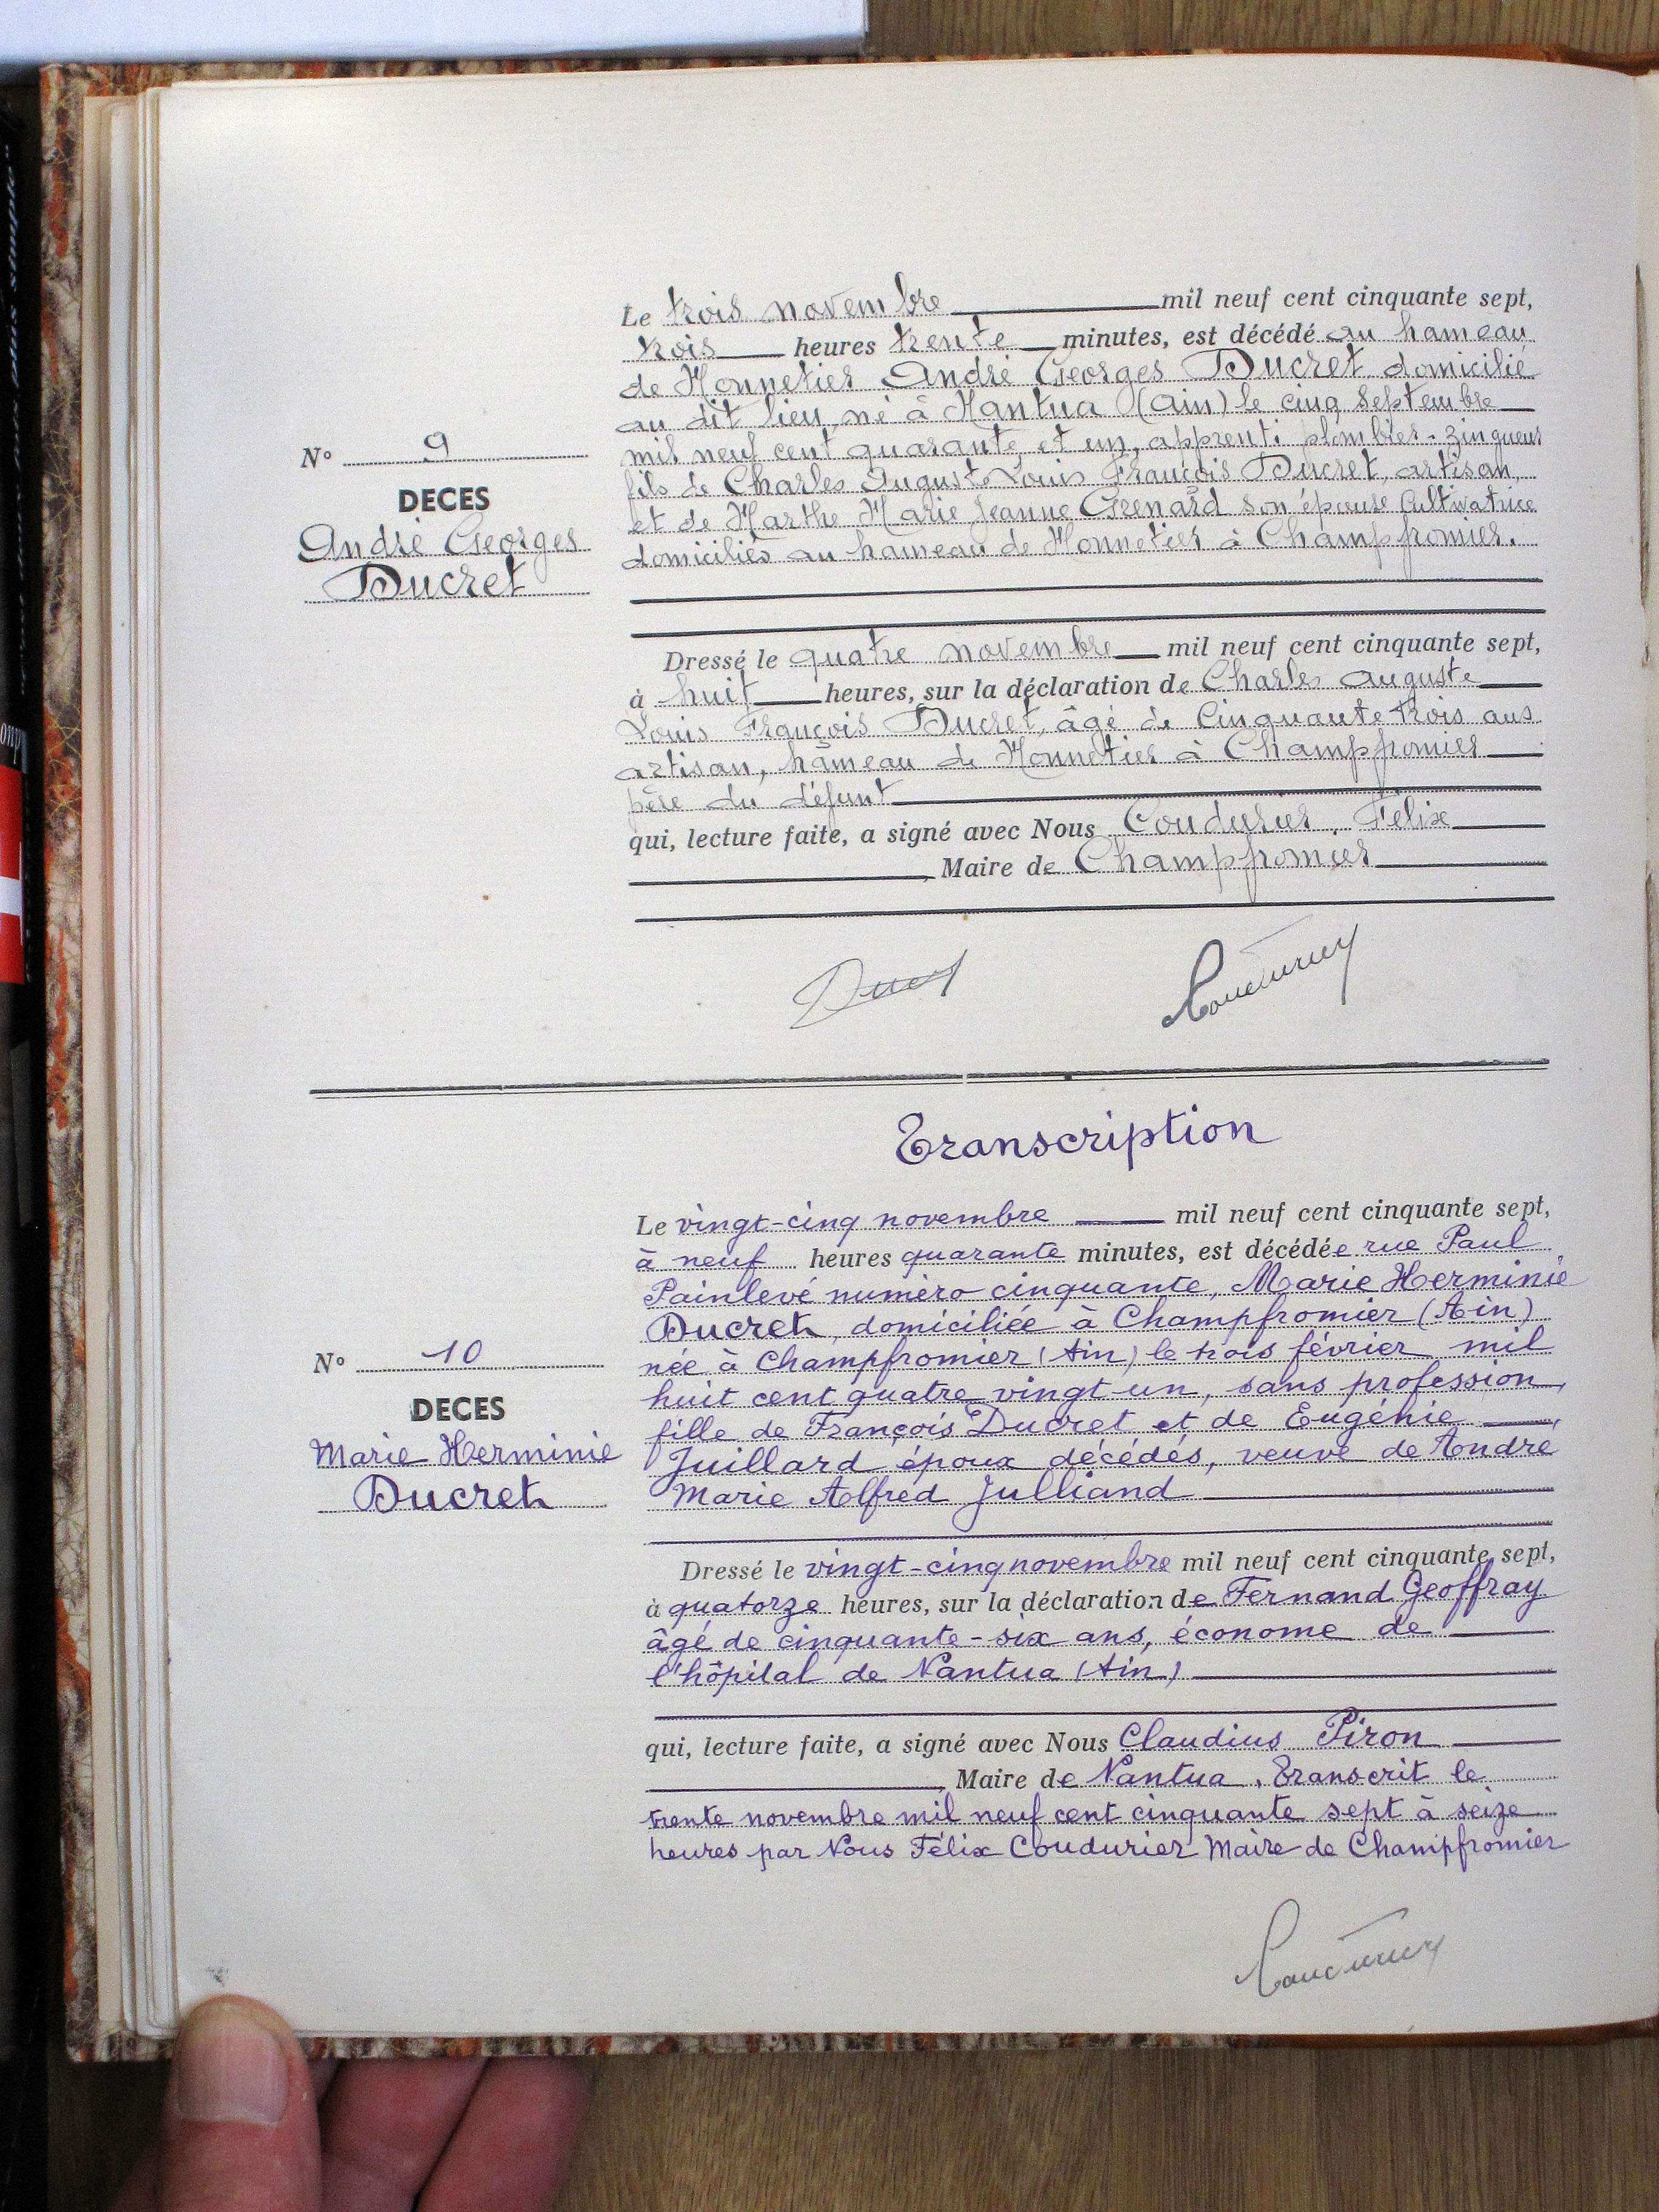 Le trois novembre mil neuf cent cinquante sept,
trois heures trente minutes, est décédé au hameau
de Monnetier André Georges Ducret domicilié
au dit lieu, né à Nantua (Ain) le cinq septembre
mil neuf cent quarante et un, apprenti plombier-zingueur
fils de Charles Auguste Louis François Ducret, artisan,
et de Marthe Marie Jeanne Grenard son épouse cultivatrice
domiciliés au hameau de Monnetier à Champfromier.
N° 9
DECES
André Georges
Ducret
Dressé le quatre novembre mil neuf cent cinquante sept,
à huit heures, sur la déclaration de Charles Auguste
Louis François Ducret, âgé de cinquante trois ans
artisan, hameau de Monnetier à Champfromier
père du défunt
qui, lecture faite, a signé avec Nous Coudurier, Félix
Maire de Champfromier
Transcription
Le vingt-cinq novembre mil neuf cent cinquante sept,
à neuf heures quarante minutes, est décédée rue Paul
Painlevé numéro cinquante, Marie Herminie
Ducret, domiciliée à Champfromier (Ain)
née à Champfromier (Ain) le trois février mil
huit cent quatre vingt un, sans profession,
fille de François Ducret et de Eugénie
Juillard époux décédés, veuve de André
Marie Alfred Julliand
N° 10
DECES
Marie Herminie
Ducret
Dressé le vingt-cinq novembre mil neuf cent cinquante sept,
à quatorze heures, sur la déclaration de Fernand Geoffray
âgé de cinquante-six ans, économe de
l'hôpital de Nantua (Ain)
qui, lecture faite, a signé avec Nous Claudius Piron
Maire de Nantua. Transcrit le
trente novembre mil neuf cent cinquante sept à seize
heures par Nous Félix Coudurier Maire de Champfromier